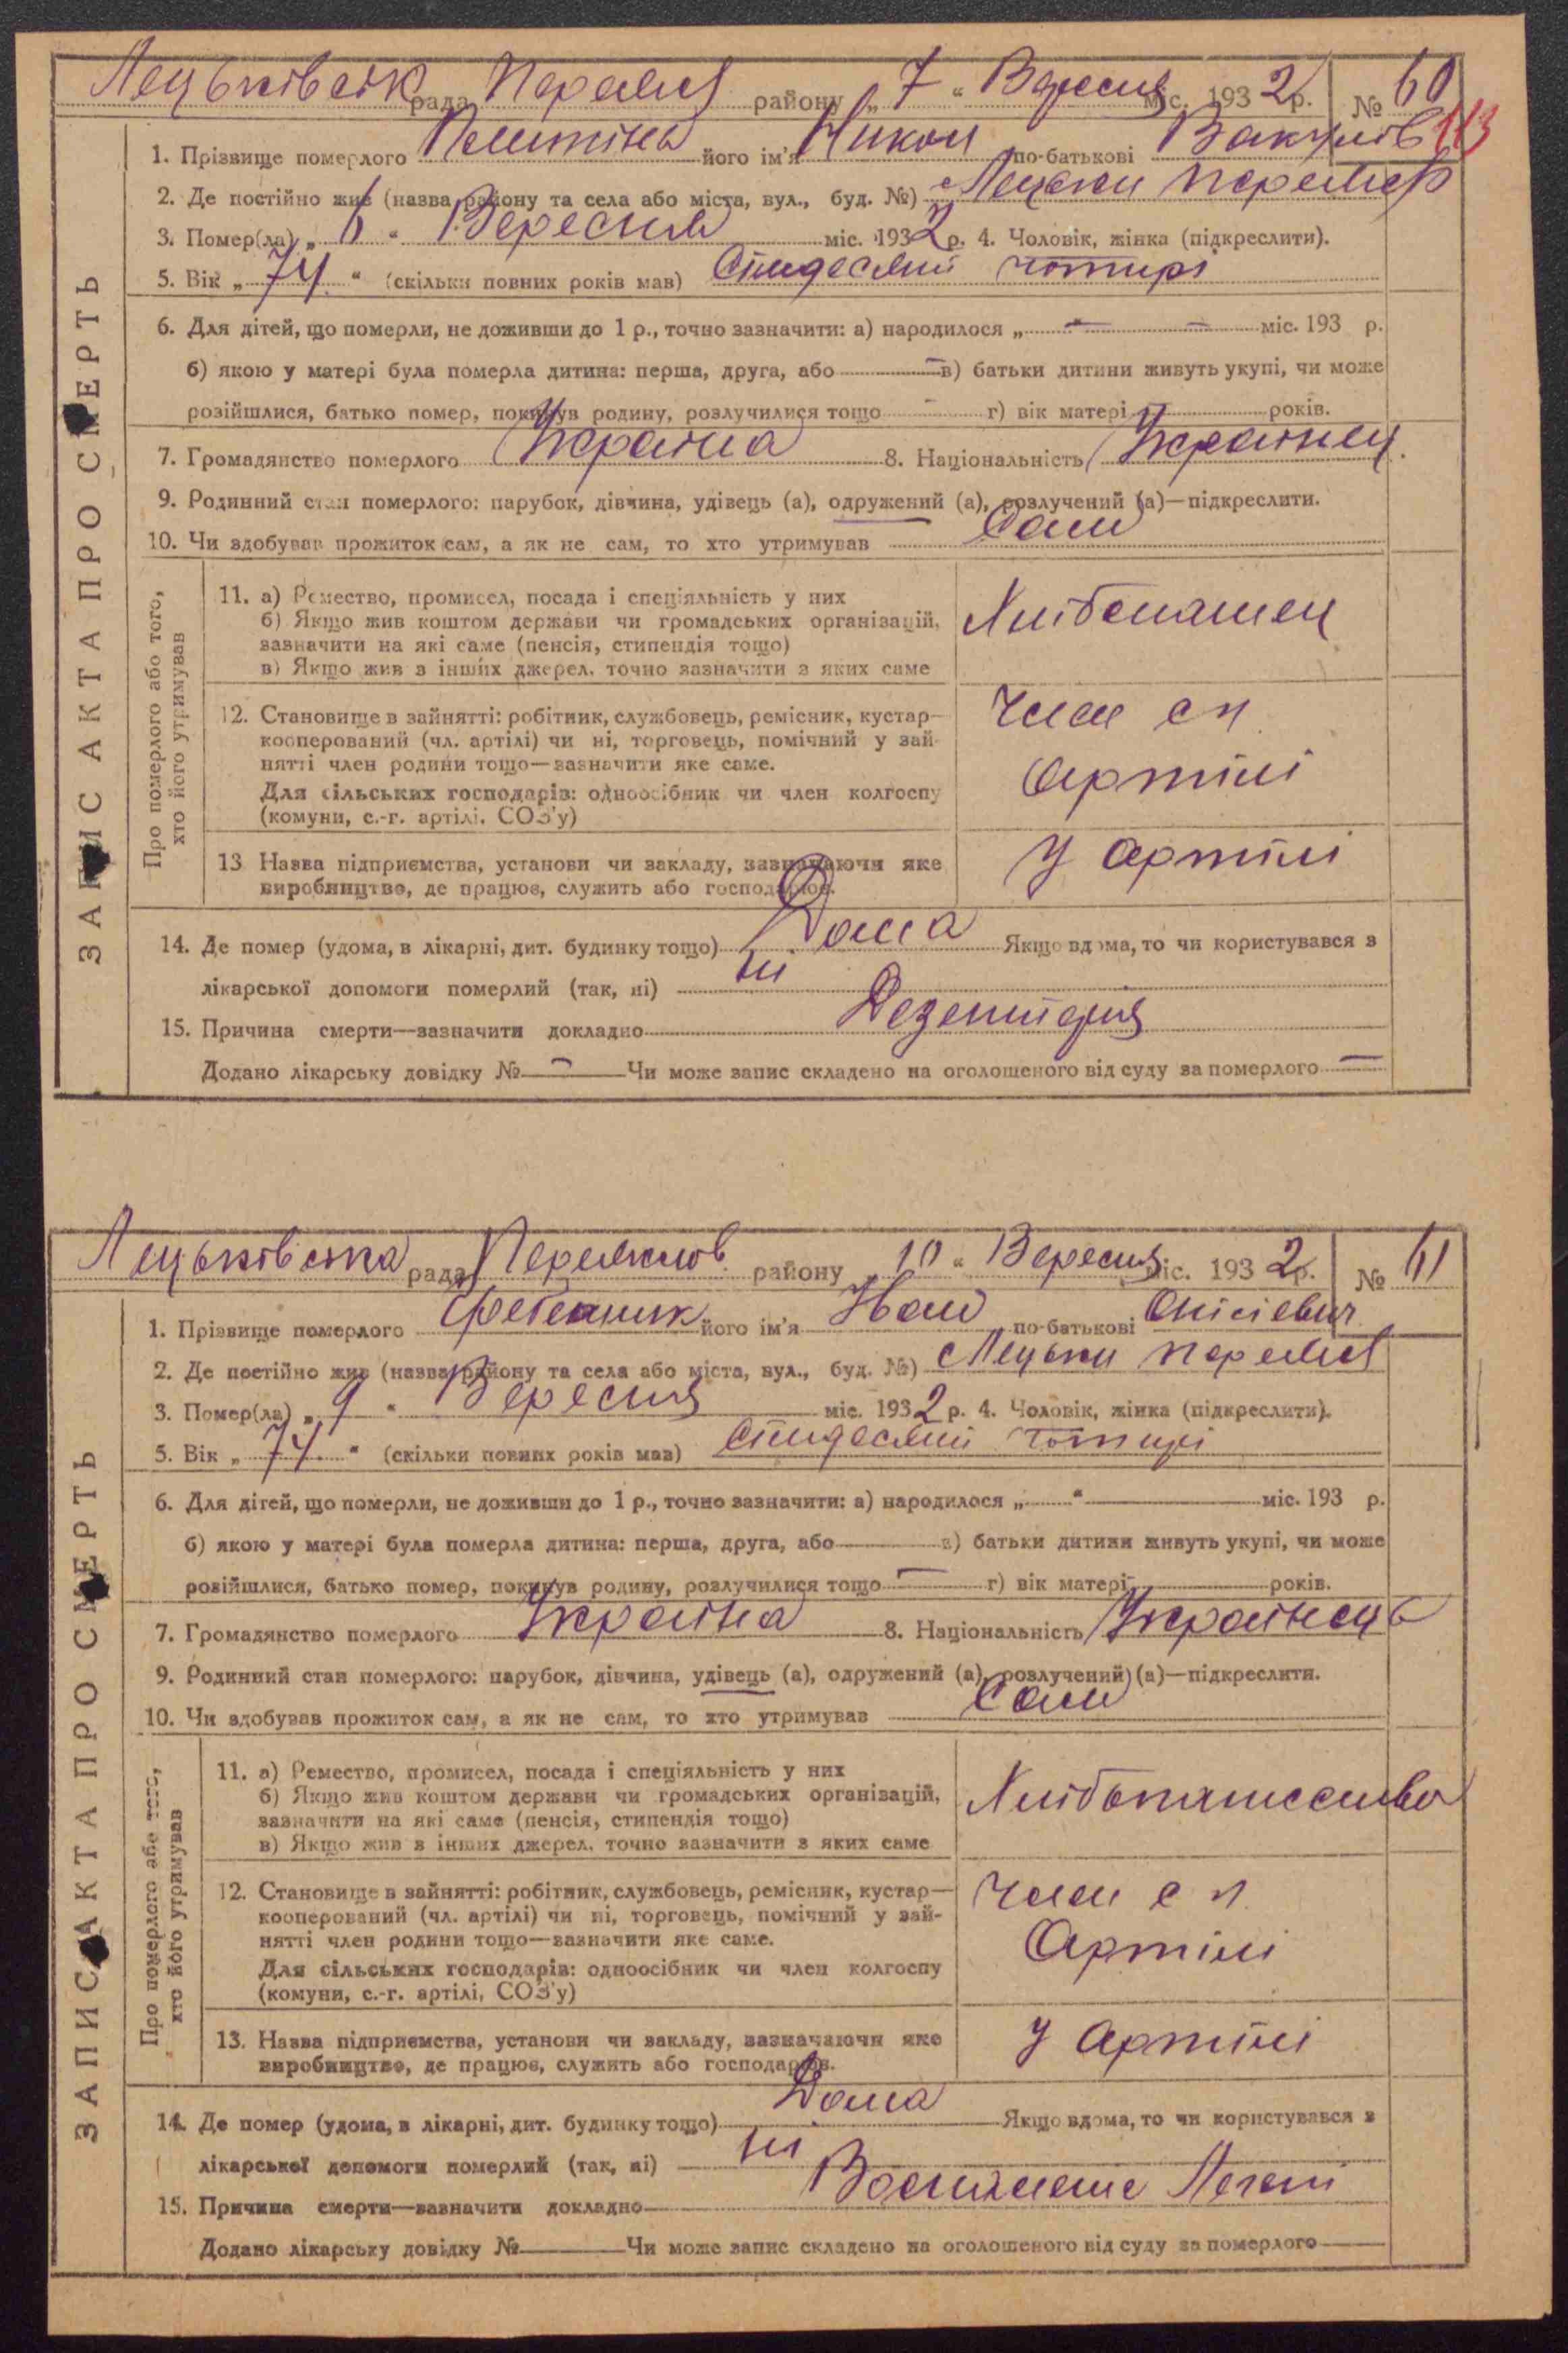 Лецьківськ рада Переясл району „7“ Вересня міс. 1932 р. № 60
113
1. Прізвище померлого його ім'я Никон по-батькові Вакулів
2. Де постійно жив (назва району та села або міста, вул., буд. №) с Лецьки Переясл
3. Помер(ла) „6“ Вересня міс. 1932 р. 4. Чоловік, жінка (підкреслити).
5. Вік „74“ (скільки повних років мав) Сімдесят чотирі
6. Для дітей, що померли, не доживши до 1 р., точно зазначити: а) народилося „—“ — міс. 193 р.
б) якою у матері була померла дитина: перша, друга, або — в) батьки дитини живуть укупі, чи може
розійшлися, батько помер, покинув родину, розлучилися тощо — г) вік матері — років.
7. Громадянство померлого Україна 8. Національність Українец.
9. Родинний стан померлого: парубок, дівчина, удівець (а), одружений (а), розлучений (а)—підкреслити.
10. Чи здобував прожиток сам, а як не сам, то хто утримував Сам
ЗАПИС АКТА ПРО СМЕРТЬ
Про померлого або того,
хто його утримував
11. а) Ремество, промисел, посада і спеціяльність у них
б) Якщо жив коштом держави чи громадських організацій,
зазначити на які саме (пенсія, стипендія тощо)
в) Якщо жив з інших джерел, точно зазначити з яких саме
Хлібопашец
12. Становище в зайнятті: робітник, службовець, ремісник, кустар—
кооперований (чл. артілі) чи ні, торговець, помічний у зай-
нятті член родини тощо—зазначити яке саме.
Для сільських господарів: одноосібник чи член колгоспу
(комуни, с.-г. артілі, СОЗ'у)
Член сг
Артілі
13 Назва підприємства, установи чи закладу, зазначаючи яке
виробництво, де працює, служить або господарює.
У Артілі
14. Де помер (удома, в лікарні, дит. будинку тощо) Дома Якщо вдома, то чи користувався з
лікарської допомоги померлий (так, ні) ні
15. Причина смерти—зазначити докладно Дезентерія
Додано лікарську довідку № — Чи може запис складено на оголошеного від суду за померлого —
Лецьківська рада Переяслов. району 10 “ Вересня міс. 1932 р. № 61
1. Прізвище померлого Гребеник його ім'я Іван по-батькові Онісієвич
2. Де постійно жив (назва району та села або міста, вул., буд. №) с Лецьки Переясл
3. Помер(ла) „9“ Вересня міс. 1932 р. 4. Чоловік, жінка (підкреслити).
5. Вік „74“ (скільки повних років мав) Сімдесят чотирі
6. Для дітей, що померли, не доживши до 1 р., точно зазначити: а) народилося „ “ міс. 193 р.
б) якою у матері була померла дитина: перша, друга, або в) батьки дитини живуть укупі, чи може
розійшлися, батько помер, покинув родину, розлучилися тощо — г) вік матері — років.
7. Громадянство померлого Україна 8. Національність Українець
9. Родинний стан померлого: парубок, дівчина, удівець (а), одружений (а), розлучений (а)—підкреслити.
10. Чи здобував прожиток сам, а як не сам, то хто утримував Сам
ЗАПИС АКТА ПРО СМЕРТЬ
Про померлого або того,
хто його утримував
11. а) Ремество, промисел, посада і спеціяльність у них
б) Якщо жив коштом держави чи громадських організацій,
зазначити на які саме (пенсія, стипендія тощо)
в) Якщо жив з інших джерел, точно зазначити з яких саме
12. Становище в зайнятті: робітник, службовець, ремісник, кустар—
кооперований (чл. артілі) чи ні, торговець, помічний у зай-
нятті член родини тощо—зазначити яке саме.
Для сільських господарів: одноосібник чи член колгоспу
(комуни, с.-г. артілі, СОЗ'у)
Член с г.
Артілі
13. Назва підприємства, установи чи закладу, зазначаючи яке
виробництво, де працює, служить або господарює.
У Артілі
14. Де помер (удома, в лікарні, дит. будинку тощо) Дома Якщо вдома, то чи користувався з
лікарської допомоги померлий (так, ні) ні
15. Причина смерти—зазначити докладно Легені
Додано лікарську довідку № Чи може запис складено на оголошеного від суду за померлого